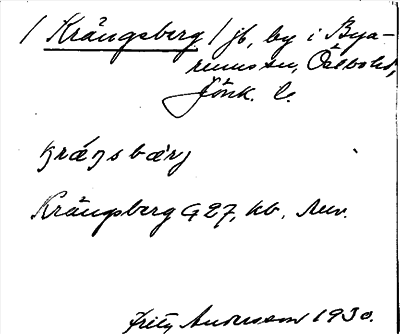 / Krängsberg / jb, by i Bya-
remo sn, Östbo hd,
Jönk. l.
kræŋsbærj
Krängsberg G 27, kb.
Fritz Andersson 1930.